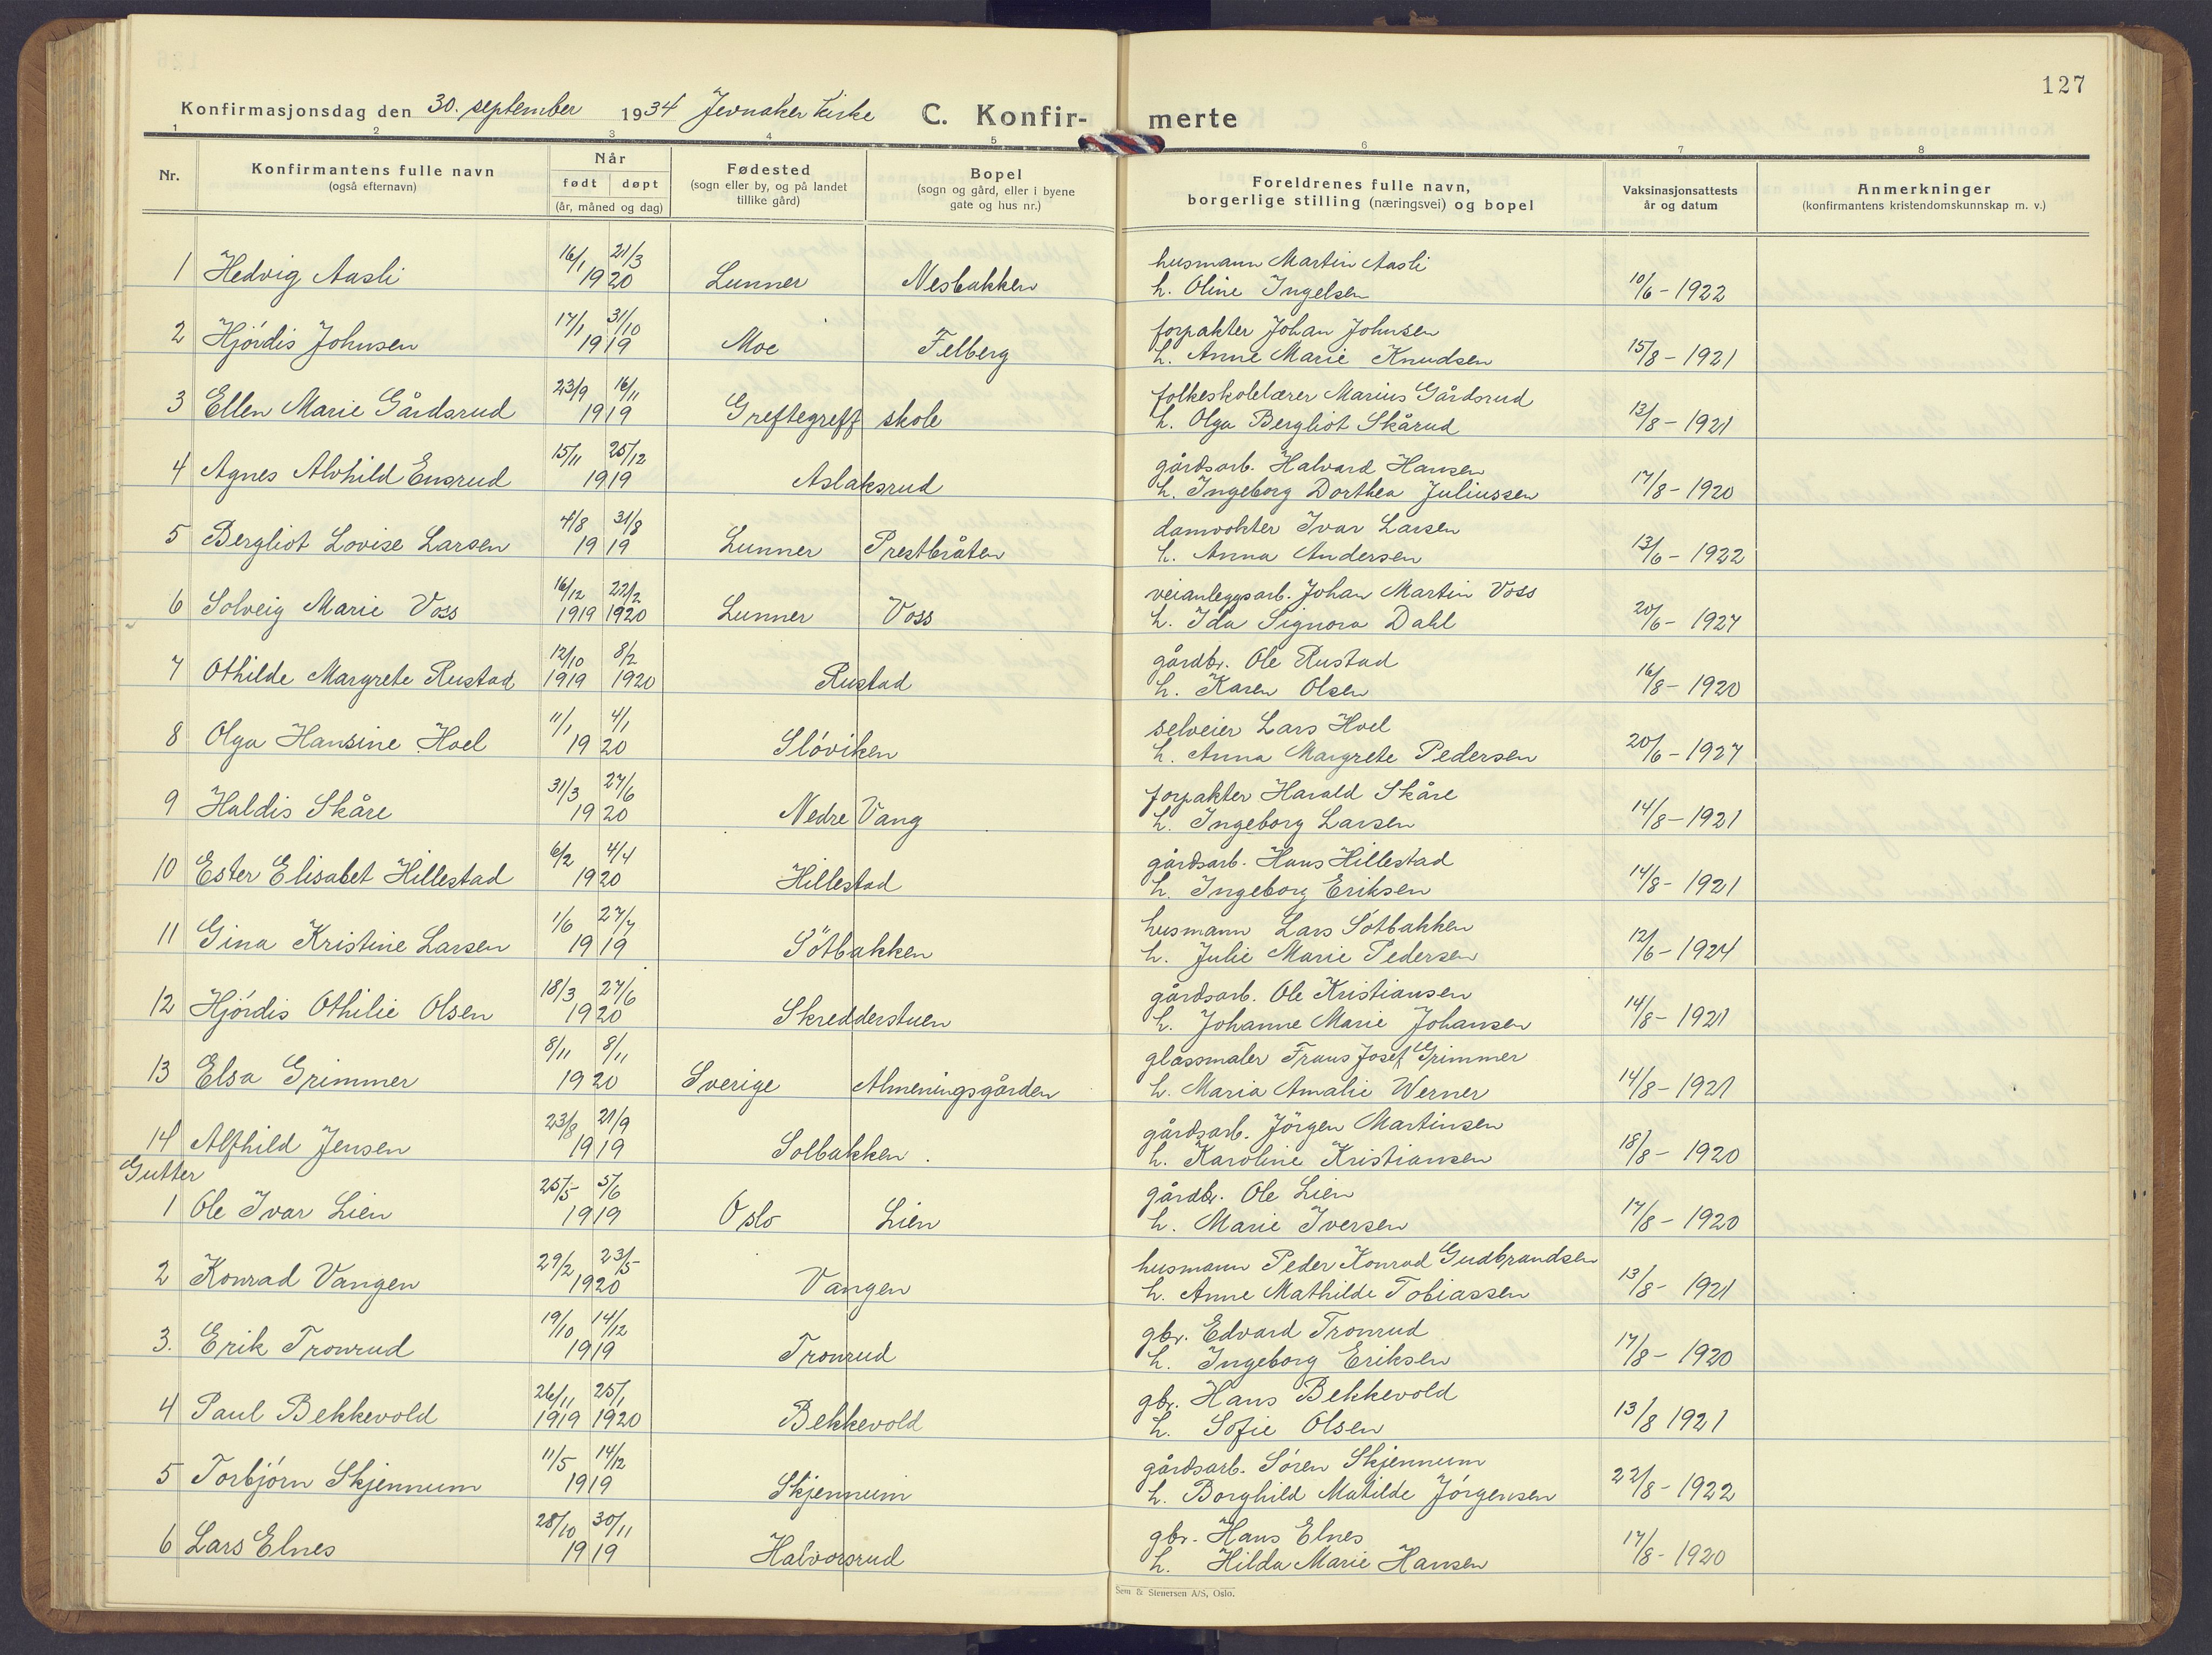 127
Konfirmasjonsdag den 30. september 1934 Jevnaker kirke C. Konfir- merte
1 2 3 4 5 6 7 8
Nr.
Konfirmantens fulle navn
(også efternavn)
Når
født døpt
(år, måned og dag)
Fødested
(sogn eller by, og på landet
tillike gård)
Bopel
(sogn og gård, eller i byene
gate og hus nr.)
Foreldrenes fulle navn,
borgerlige stilling (næringsvei) og bopel
Vaksinasjonsattests
år og datum
Anmerkninger
(konfirmantens kristendomskunnskap m. v.)
16/1 21/3 husmann Martin Aasli
1 Hedvig Aasli 1920 Lunner Nesbakken h. Oline Ingelsen 10/6 - 1922
17/1 31/10 forpakter Johan Johnsen
2 Hjördis Johnsen 1919 Moe Felberg h. Anne Marie Knudsen 15/8 - 1921
23/9 16/11 folkeskolelærer Marius Gårdsrud
3 Ellen Marie Gårdsrud 1919 Greftegreff skole h. Olga Bergliot Skårud 13/8 - 1921
15/11 25/12 gårdsarb. Halvard Hansen
4 Agnes Alvhild Ensrud 1919 Aslaksrud h. Ingeborg Dorthea Juliussen 17/8 - 1920
4/8 31/8 damvokter Ivar Larsen
5 Bergliot Lovise Larsen 1919 Lunner Prestbråten h. Anna Andersen 13/6 - 1922
16/12 22/2 veianleggsarb. Johan Martin Voss
6 Solveig Marie Voss 1919 1920 Lunner Voss h. Ida Signora Dahl 20/6 - 1927
12/10 8/2 gårdbr. Ole Rustad
7 Othilde Margrete Rustad 1919 1920 Rustad h. Karen Olsen 16/8 - 1920
11/1 4/1 selveier Lars Hoel
8 Olga Hansine Hoel 1920 Slöviken h. Anna Margrete Pedersen 20/6 - 1927
31/3 27/6 forpakter Harald Skåre
9 Haldis Skåre 1920 Nedre Vang h. Ingeborg Larsen 14/8 - 1921
6/2 4/4 gårdsarb. Hans Hillestad
10 Ester Elisabet Hillestad 1920 Hillestad h. Ingeborg Eriksen 14/8 - 1921
1/6 27/7 husmann Lars Sötbakken
11 Gina Kristine Larsen 1919 Sötbakken h. Julie Marie Pedersen 12/6 - 1924
18/3 27/6 gårdsarb. Ole Kristiansen
12 Hjördis Othilie Olsen 1920 Skredderstuen h. Johanne Marie Johansen 14/8 - 1921
8/11 8/11 glassmaler Frans Josef Grimmer
13 Elsa Grimmer 1920 Sverige Almeningsgården h. Maria Amalie Werner 14/8 - 1921
23/8 21/9 gårdsarb. Jörgen Martinsen
14 Alfhild Jensen 1919 Solbakken . h. Karoline Kristiansen 18/8 - 1920
Gutter
25/5 5/6 gårdbr. Ole Lien
1 Ole Ivar Lien 1919 Oslo Lien h. Marie Iversen 17/8 - 1920
29/2 23/5 husmann Peder Konrad Gudbrandsen
2 Konrad Vangen 1920 Vangen h. Anne Mathilde Tobiassen 13/8 - 1921
19/10 14/12 gbr. Edvard Tronrud
3. Erik Tronrud 1919 Tronrud h. Ingeborg Eriksen 17/8 - 1920
26/11 25/1 gbr. Hans Bekkevold
4 Paul Bekkevold 1919 1920 Bekkevold h. Sofie Olsen 13/8 1921
11/5 14/12 gårdsarb. Sören Skjennum
5 Torbjörn Skjennum 1919 Skjennum h. Borghild Matilde Jörgensen 22/8 - 1922
28/10 30/11 gbr. Hans Elnes
6 Lars Elnes 1919 Halvorsrud h. Hilda Marie Hansen 17/8 - 1920
Sem & Stenersen A/S, Oslo.